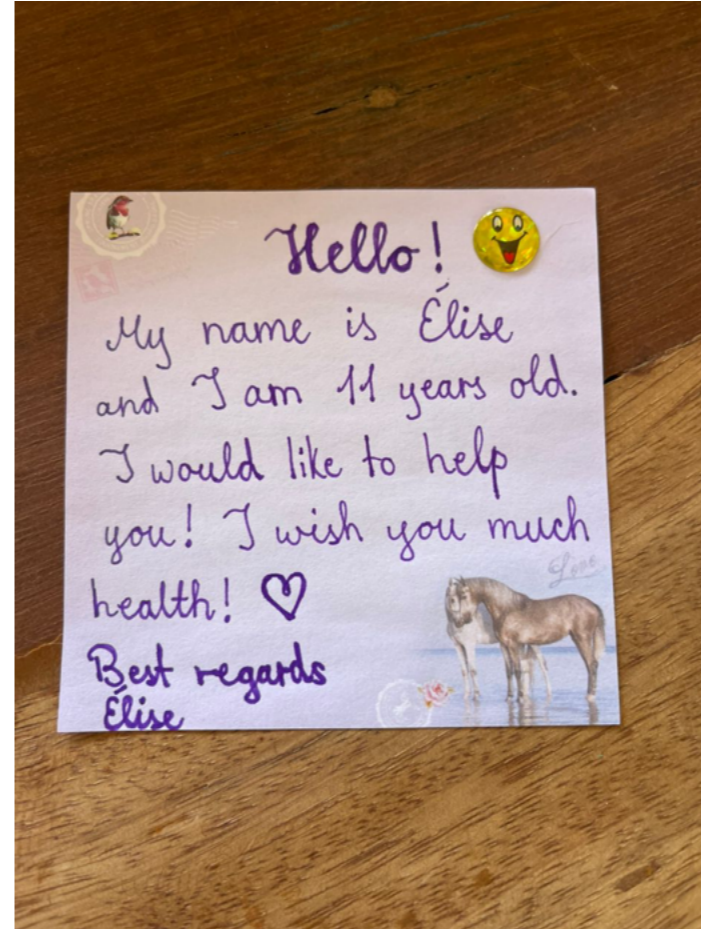 Hello!
My name is Élise
and I am 11 years old.
I would like to help
you! I wish you much
health! ♡
Love
Best regards
Élise